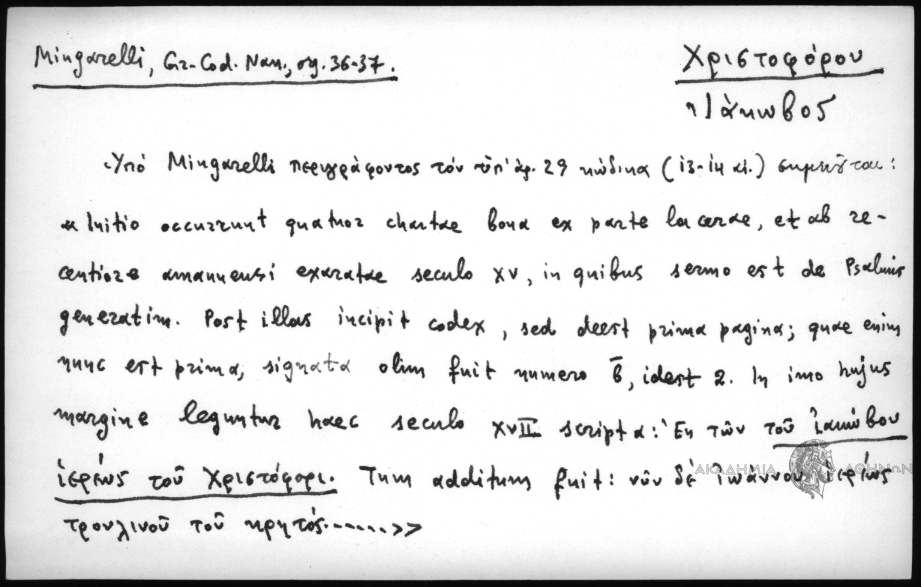 Mingarelli, Gr. Cod. Nan., σγ. 36-37.
Χριστοφόρου
Ἰάκωβος
Ὑπό Mingarelli περιγράφοντος τόν ὑπ' ἀρ. 29 κώδικα (13-14 αἰ.) σημειοῦται:
« Initio occurrunt quatuor chartae bona ex parte lacerae, et ab re-
centiore amanuensi exaratae seculo XV, in quibus sermo est de Psalmis
generatim. Post illas incipit codex, sed deest prima pagina; quae enim
nunc est prima, signata olim fuit numero β̄, idest 2. In imo hujus
margine leguntur haec seculo XVII scripta: Ἐκ τῶν τοῦ ἰακώβου
ἱερέως τοῦ Χριστόφορι. Tum additum fuit: νῦν δέ ἰωάννου ἱερέως
τρουλινοῦ τοῦ κρητός......>>
ΑΚΑΔΗΜΙΑ ΑΘΗΝΩΝ